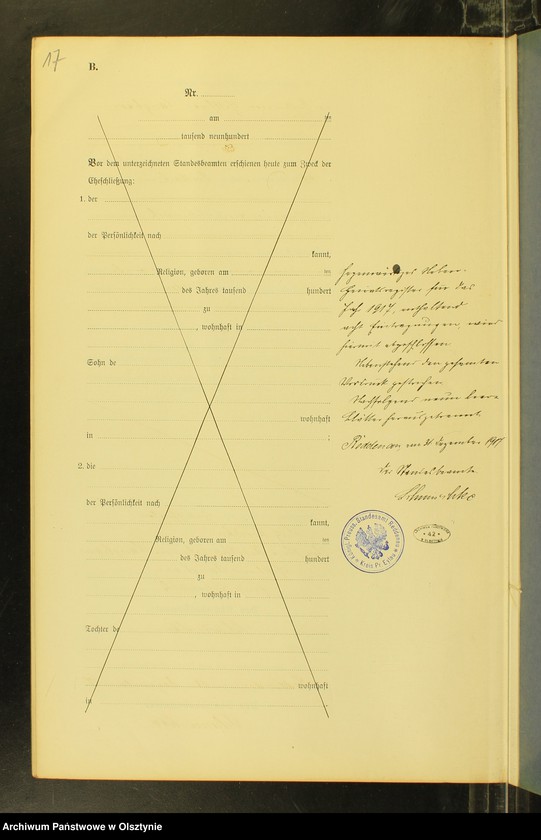 17
B.
Nr.
am ten
tausend neunhundert
Vor dem unterzeichneten Standesbeamten erschienen heute zum Zweck der
Eheschließung:
1. der
der Persönlichkeit nach
kannt,
Religion, geboren am ten
des Jahres tausend hundert
zu
, wohnhaft in
Sohn de
wohnhaft
in ;
2. die
der Persönlichkeit nach
kannt,
Religion, geboren am ten
des Jahres tausend hundert
zu
, wohnhaft in
Tochter de
wohnhaft
in
Gegenwärtiges Neben-
register für das
Jahr 1917, enthaltend
acht Eintragungen, wird
hiermit abgeschlossen
Nebenstehend den gesamten
Vordruck gestrichen
Nachfolgend neun leere
Blätter herausgetrennt.
am 31 Dezember 1917
Der Standesbeamte
Königl. Preuss. Standesamt
Kreis
42
Archiwum Państwowe w Olsztynie